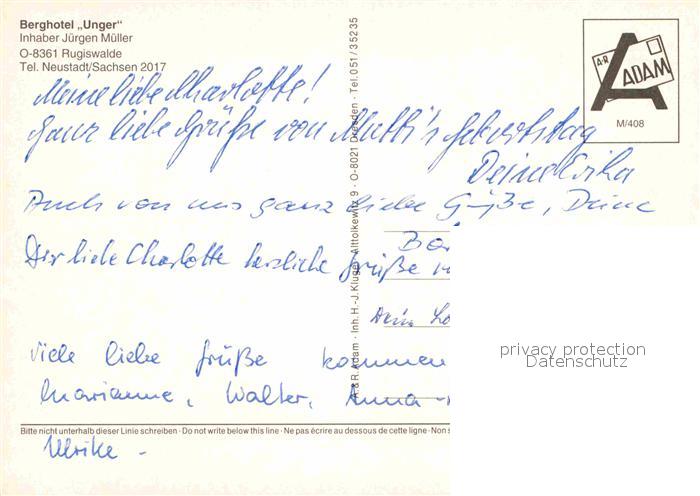 Berghotel „Unger"
Inhaber Jürgen Müller
O-8361 Rugiswalde
Tel. Neustadt/Sachsen 2017
A·R
ADAM
M/408
A & R Adam · Inh. H.-J. Kluger · Alttolkewitz 9 · O-8021 Dresden · Tel. 051/35235
Meine liebe Charlotte!
Ganz liebe Grüße von Mutti's Geburtstag
Deine Erika
Auch von uns ganz liebe Grüße, Deine
Dir liebe Charlotte herzliche Grüße
Dein
viele liebe Grüße kommen
Marianne, Walter, Anna-
privacy protection
Datenschutz
Bitte nicht unterhalb dieser Linie schreiben · Do not write below this line · Ne pas écrire au dessous de cette ligne · Non
Ulrike -